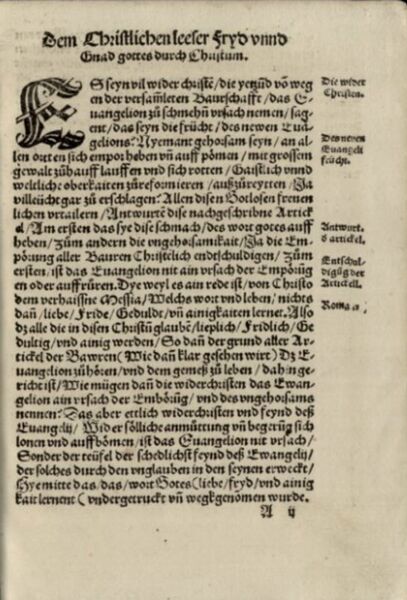 Dem Christlichen leeser Fryd vnnd
Gnad gottes durch Christum.
ES seyn vil wider christē/die yetzūd vō weg
en der versamleten Baurschafft/das E-
uangelion zů schmehñ vrsach nemen/sag-
ent/das seyn die frücht/des newen Eua-
gelions? Nyemant gehorsam seyn/an al-
len ortten sich emporheben vñ auff pömen/mit grossem
gewalt zůhauff lauffen vnd sich rotten/Gaistlich vnnd
weltliche oberkaiten zůreformieren/außzůreytten/Ja
villeücht gar zů erschlagen? Allen disen Gotlosen freuen
lichen vrtailern/Antwurtē dise nachgeschribne Artick
el/Am ersten das sye dise schmach/des wort gotes auff
heben/zům andern die vngehorsamikait/Ja die Em-
pörung aller Bauren Christlich entschuldigen/zům
ersten/ist das Euangelion nit ain vrsach der Empörūg
en oder auffrůren. Dye weyl es ain rede ist/von Christo
dem verhaissne Messia/Welchs wort vnd leben/nichts
dañ/liebe/Fride/Geduldt/vñ ainigkaiten lernet. Also
dz alle die in disen Christū glaubē/lieplich/Fridlich/Ge
dultig/vnd ainig werden/So dañ der grund aller Ar-
tickel der Bawren (Wie dañ klar gesehen wirt) Dz E-
uangelion zů hören/vnd dem gemeß zů leben/dahin ge-
richt ist/Wie mügen dañ die widerchristen das Ewan-
gelion ain vrsach der Embörūg/vnd des vngehorsams
nennen? Das aber ettlich widerchristen vnd feynd deß
Euangelij/Wider sölliche anmůttung vñ begerūg sich
lonen vnd auffbömen/ist das Euangelion nit vrsach/
Sonder der teüfel der schedlichst feynd deß Ewangelij/
der solches durch den vnglauben in den seynen erweckt/
Hye mitte das/das/wort Gotes (liebe/fryd/vnd ainig
kait lernent (vndergetruckt vñ wegkgenomen wurde.
A ij
Die wider
Christen.
Des newen
Euangeli
frücht.
Antwurt-
s artickel.
Entschul-
digūg der
Artickell.
Roma